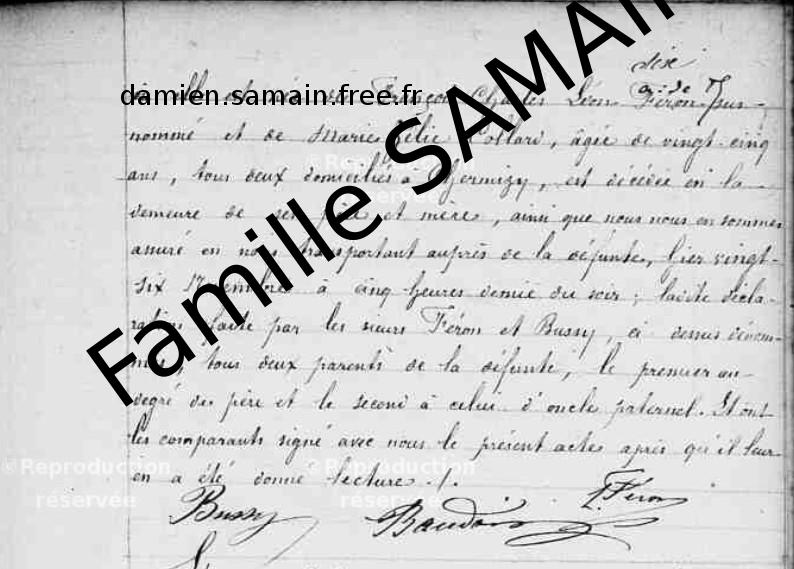 dixe
a: de T
François Charles Léon Féron sus-
nommé et de Marie Zélie Collard, âgée de vingt-cinq
ans, tous deux domiciliés à Chermizy, est décédée en la
demeure de ses père et mère, ainsi que nous nous en sommes
assuré en nous transportant auprès de la défunte, hier vingt-
six Novembre à cinq heures demie du soir; ladite décla-
ration faite par les sieurs Féron et Bussy, ci dessus dénom-
més, tous deux parents de la défunte, le premier au
degré de père et le second à celui d'oncle paternel. Et ont
les comparants signé avec nous le présent acte après qu'il leur
en a été donné lecture ./.
Bussy Baudoin L. Féron
damien.samain.free.fr
Famille SAMAI
©Reproduction
réservée
©Reproduction
réservée
©Reproduction
réservée